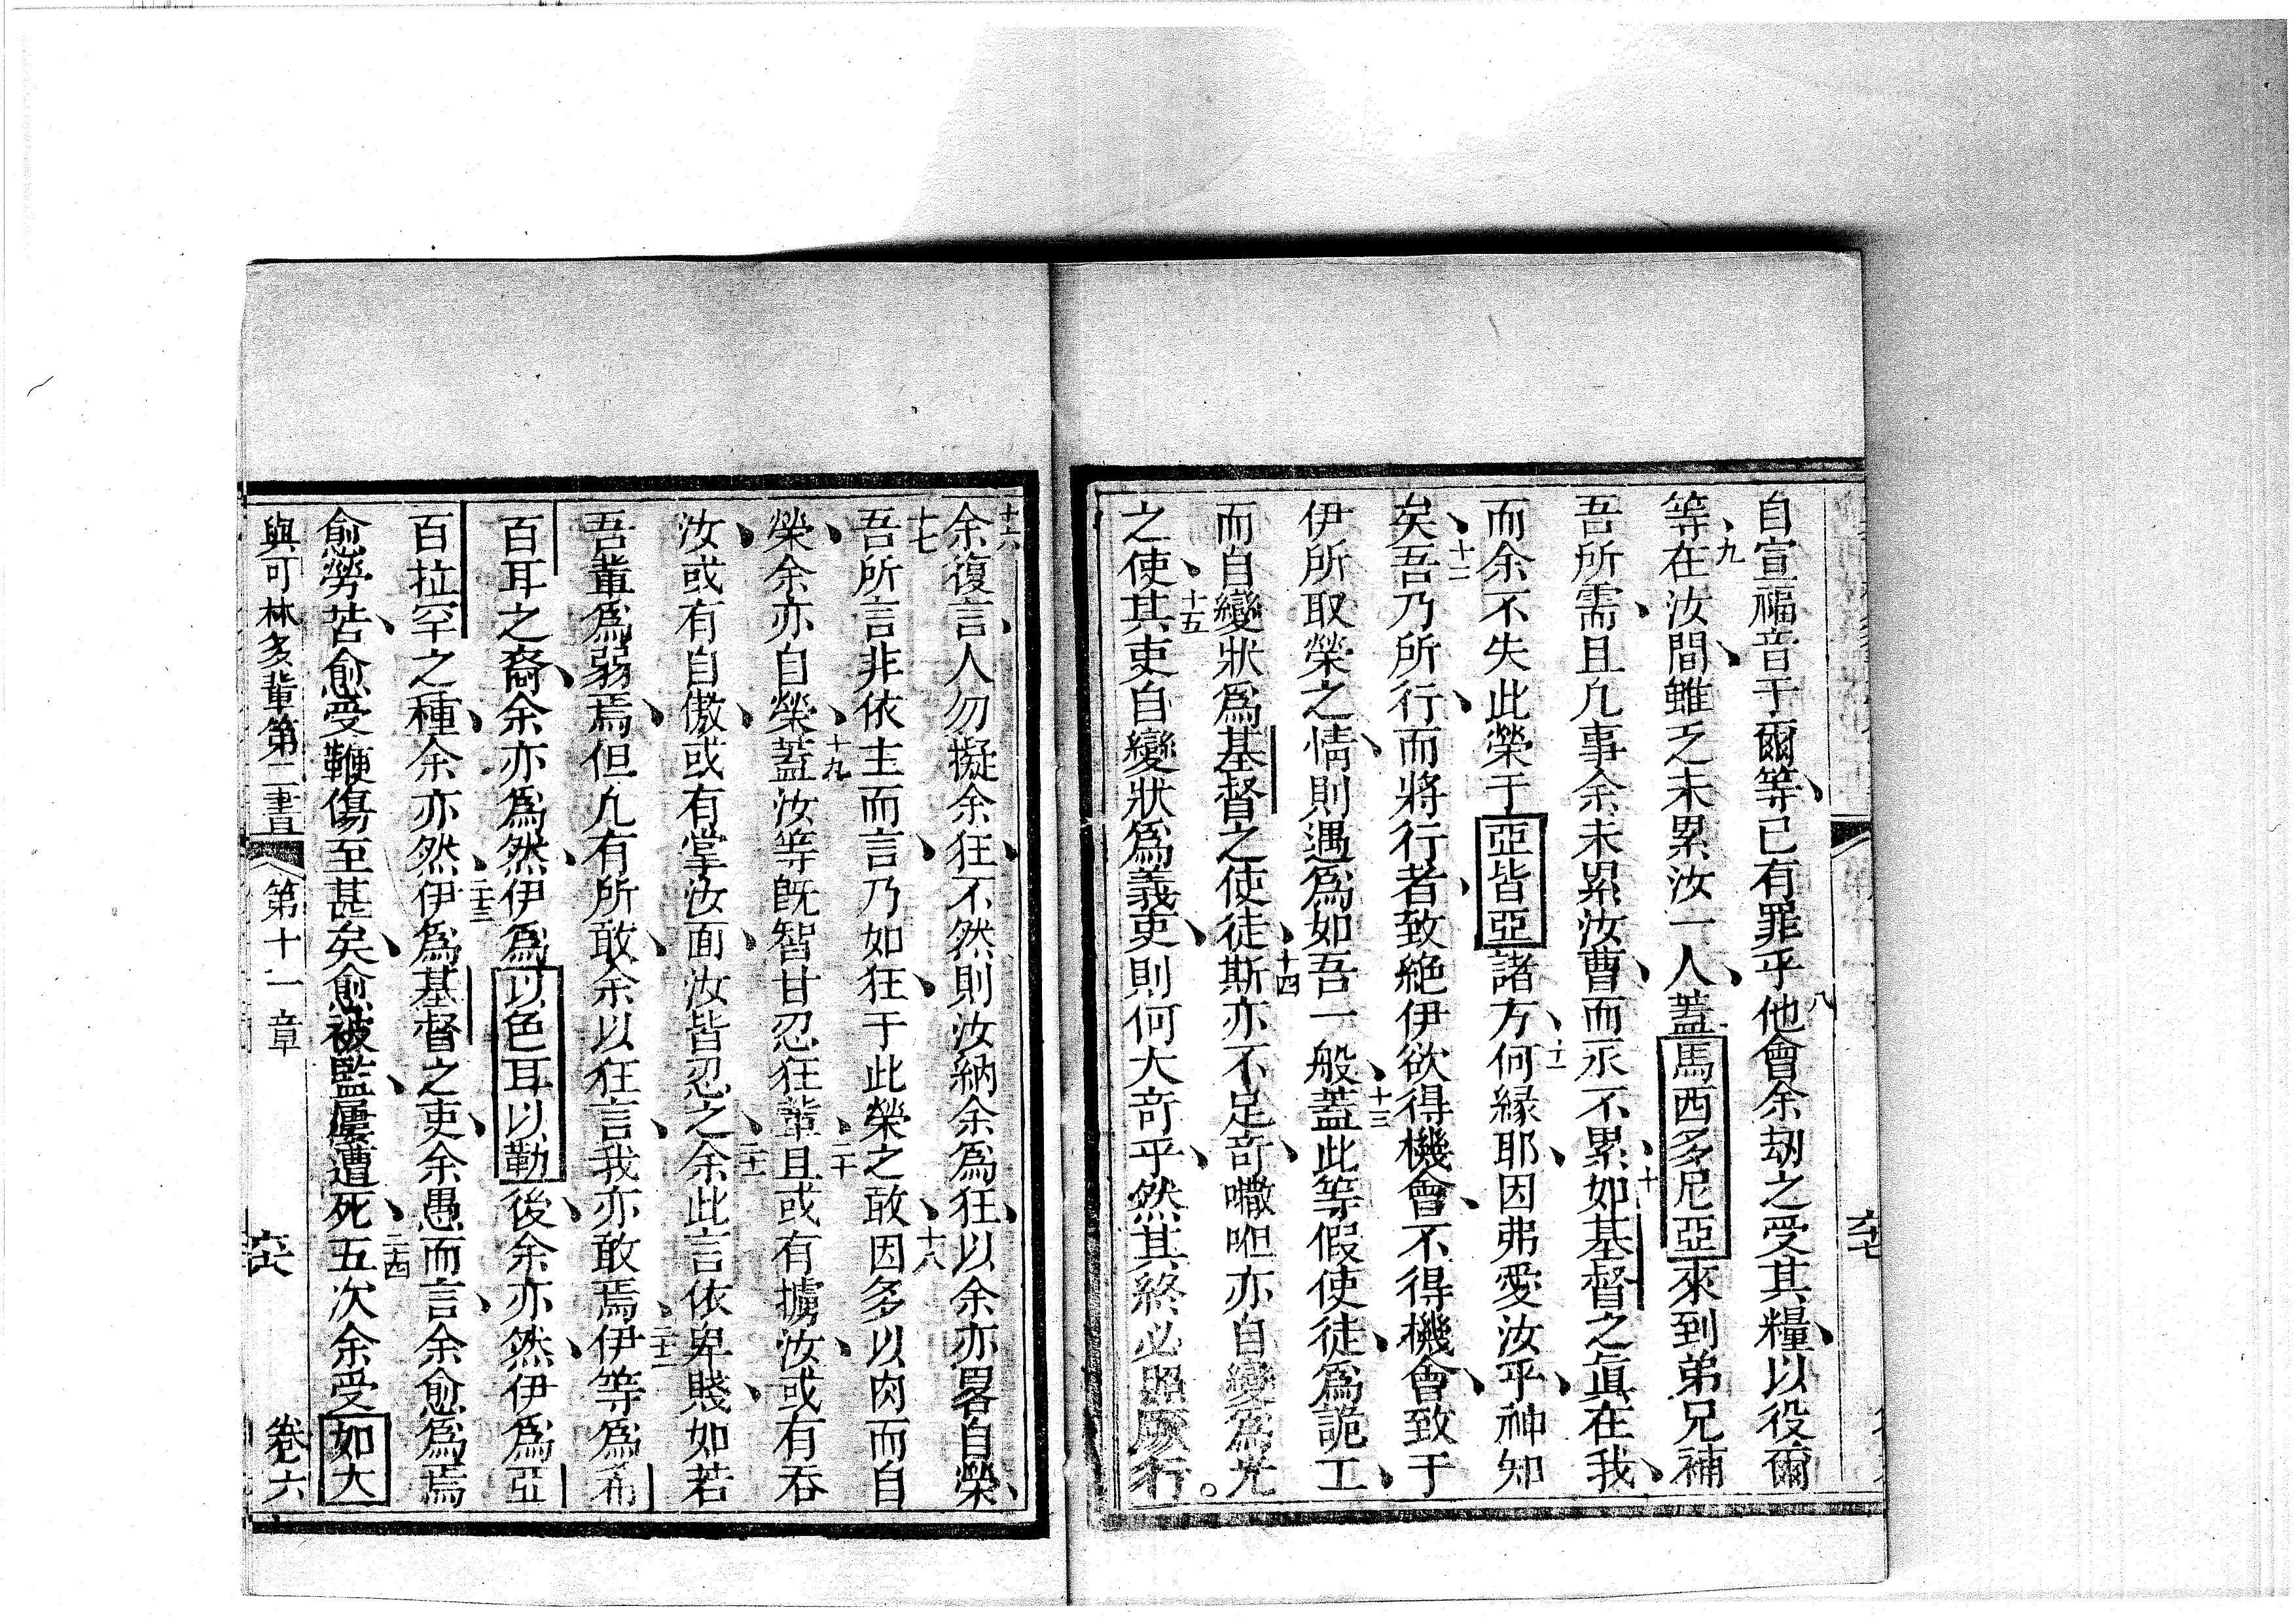 自宣福音于爾等已有罪乎八他會余刼之受其糧以役爾
等九在汝間雖乏未累汝一人蓋馬西多尼亞來到弟兄補
吾所需且凢事余未累汝曹而永不累十如基督之眞在我
而余不失此榮于亞皆亞諸方十一何緣耶因弗愛汝乎神知
矣十二吾乃所行而將行者致絶伊欲得機會不得機會致于
伊所取榮之情則遇爲如吾一般十三蓋此等假使徒爲詭工
而自變狀爲基督之使徒十四斯亦不足奇囉呾亦自變爲光
之使十五其吏自變狀爲義吏則何大奇乎然其終必照厥行。
十六余復言人勿擬余狂不然則汝納余爲狂以余亦畧自榮
十七吾所言非依主而言乃如狂于此榮之敢十八因多以肉而自
榮余亦自榮十九蓋汝等旣智甘忍狂輩二十且或有擄汝或有吞
汝或有自傲或有掌汝面汝皆忍之二十一余此言依卑賤如若
吾輩爲弱焉但凢有所敢余以狂言我亦敢焉二十二伊等爲希
百耳之裔余亦爲然伊爲以色耳以勒後余亦然伊爲亞
百拉罕之種余亦然二十三伊爲基督之吏余愚而言余愈爲焉
愈勞苦愈受鞭傷至甚矣愈被監屢遭死二十四五次余受如大
與可林多輩第二書 第十一章 卷六